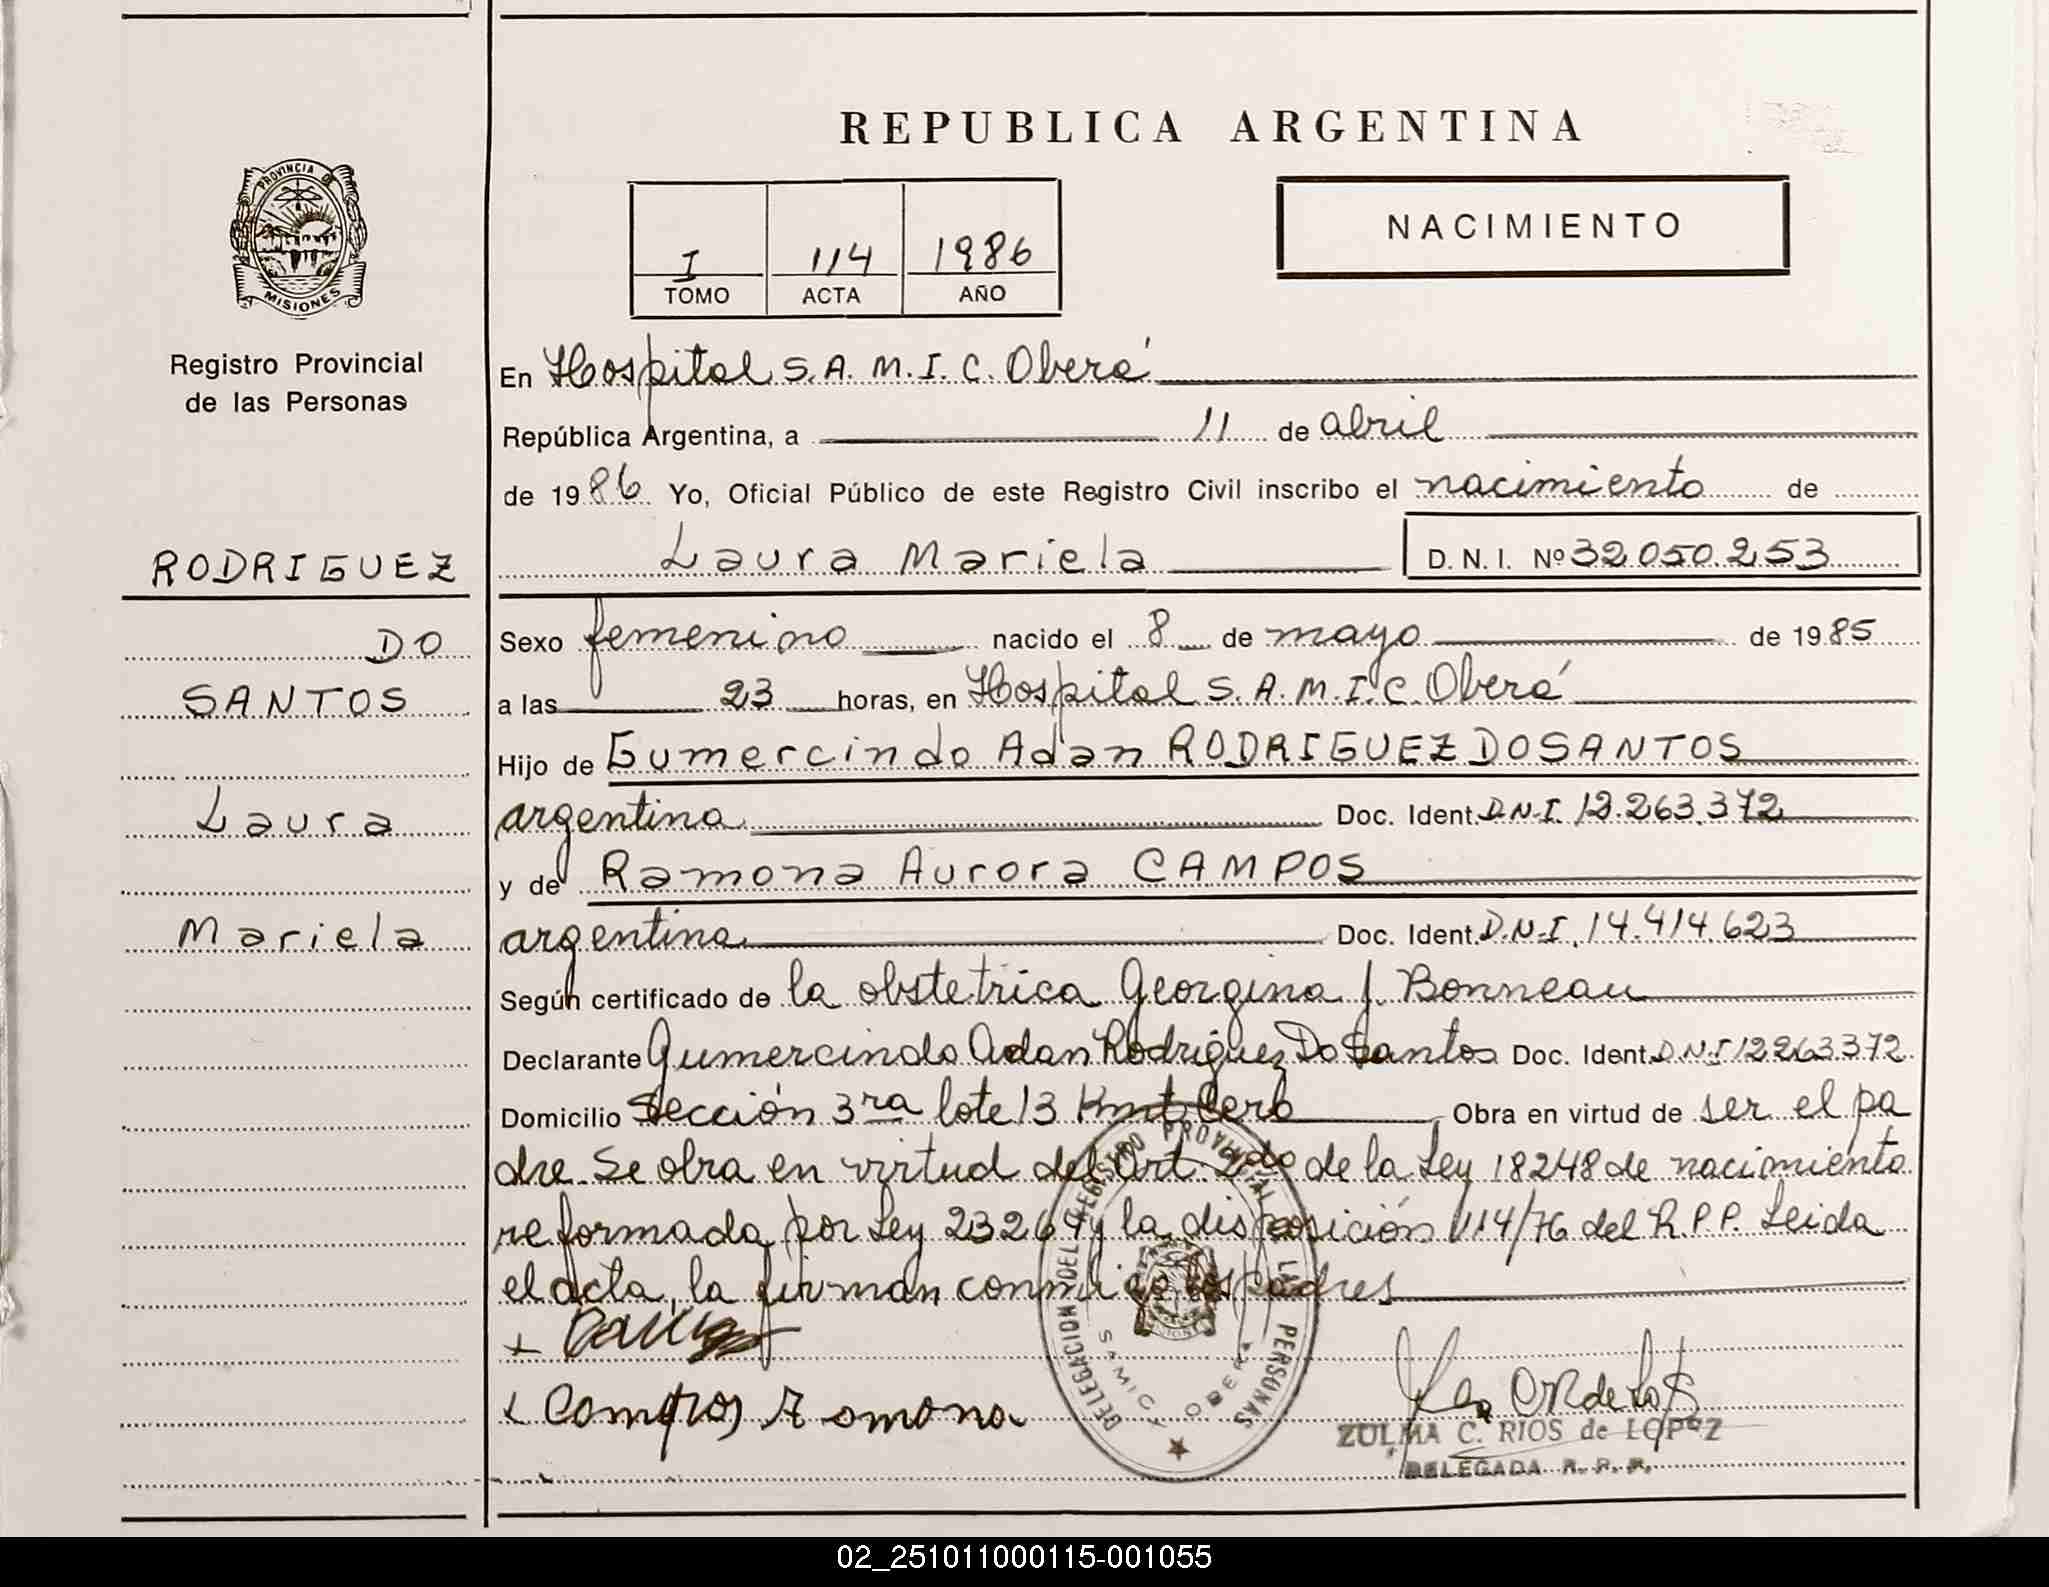 REPUBLICA ARGENTINA
PROVINCIA DE
MISIONES
Registro Provincial
de las Personas
NACIMIENTO
I 114 1986
TOMO ACTA AÑO
En Hospital S.A.M.I.C. Oberá
República Argentina, a 11 de abril
de 1986 Yo, Oficial Público de este Registro Civil inscribo el nacimiento de
Laura Mariela D.N.I. Nº 32.050.253
RODRIGUEZ
DO
SANTOS
Laura
Mariela
Sexo femenino nacido el 8 de mayo de 1985
a las 23 horas, en Hospital S.A.M.I.C. Oberá
Hijo de Gumercindo Adan RODRIGUEZ DO SANTOS
argentina Doc. Ident. D.N.I. 12.263.372
y de Ramona Aurora CAMPOS
argentina Doc. Ident. D.N.I. 14.414.623
Según certificado de la obstetrica Georgina J. Bonneau
Declarante Gumercindo Adan Rodriguez Do Santos Doc. Ident. D.N.I 12263.372
Domicilio Sección 3ra lote 13 Obra en virtud de ser el pa
dre. Se obra en virtud del Art. 2do de la Ley 18248 de nacimiento
reformada por Ley 23264 y la disposición 114/76 del R.P.P. Leida
el acta, la firman conmigo los padres
x
x Campos Ramona
DELEGACION DEL REGISTRO PROVINCIAL DE LAS PERSONAS
SAMIC OBERA
MISIONES
ZULMA C. RIOS de LOPEZ
DELEGADA R. P. P.
02_251011000115-001055